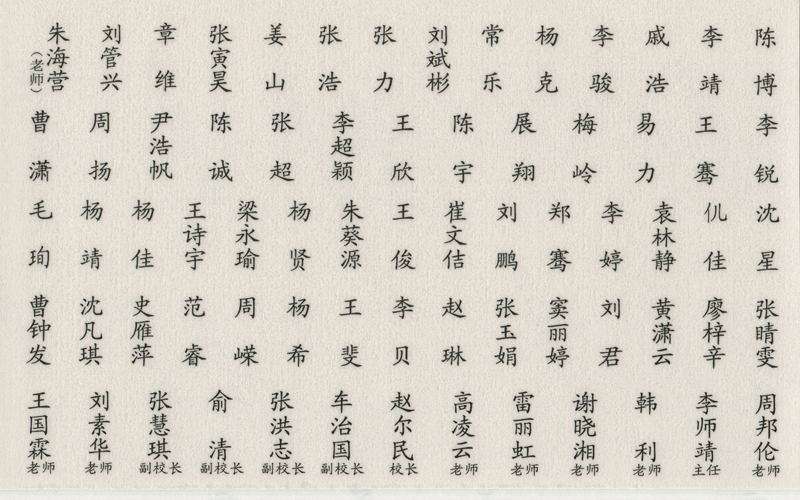 朱海营（老师） 刘管兴 章维 张寅昊 姜山 张浩 张力 刘斌彬 常乐 杨克 李骏 戚浩 李靖 陈博
曹潇 周扬 尹浩帆 陈诚 张超 李超颖 王欣 陈宇 展翔 梅岭 易力 王骞 李锐
毛珣 杨靖 杨佳 王诗宇 梁永瑜 杨贤 朱葵源 王俊 崔文佶 刘鹏 郑骞 李婷 袁林静 仉佳 沈星
曹钟发 沈凡琪 史雁萍 范睿 周嵘 杨希 王斐 李贝 赵琳 张玉娟 窦丽婷 刘君 黄潇云 廖梓辛 张晴雯
王国霖老师 刘素华老师 张慧琪副校长 俞清副校长 张洪志副校长 车治国副校长 赵尔民校长 高凌云老师 雷丽虹老师 谢晓湘老师 韩利老师 李师靖主任 周邦伦老师